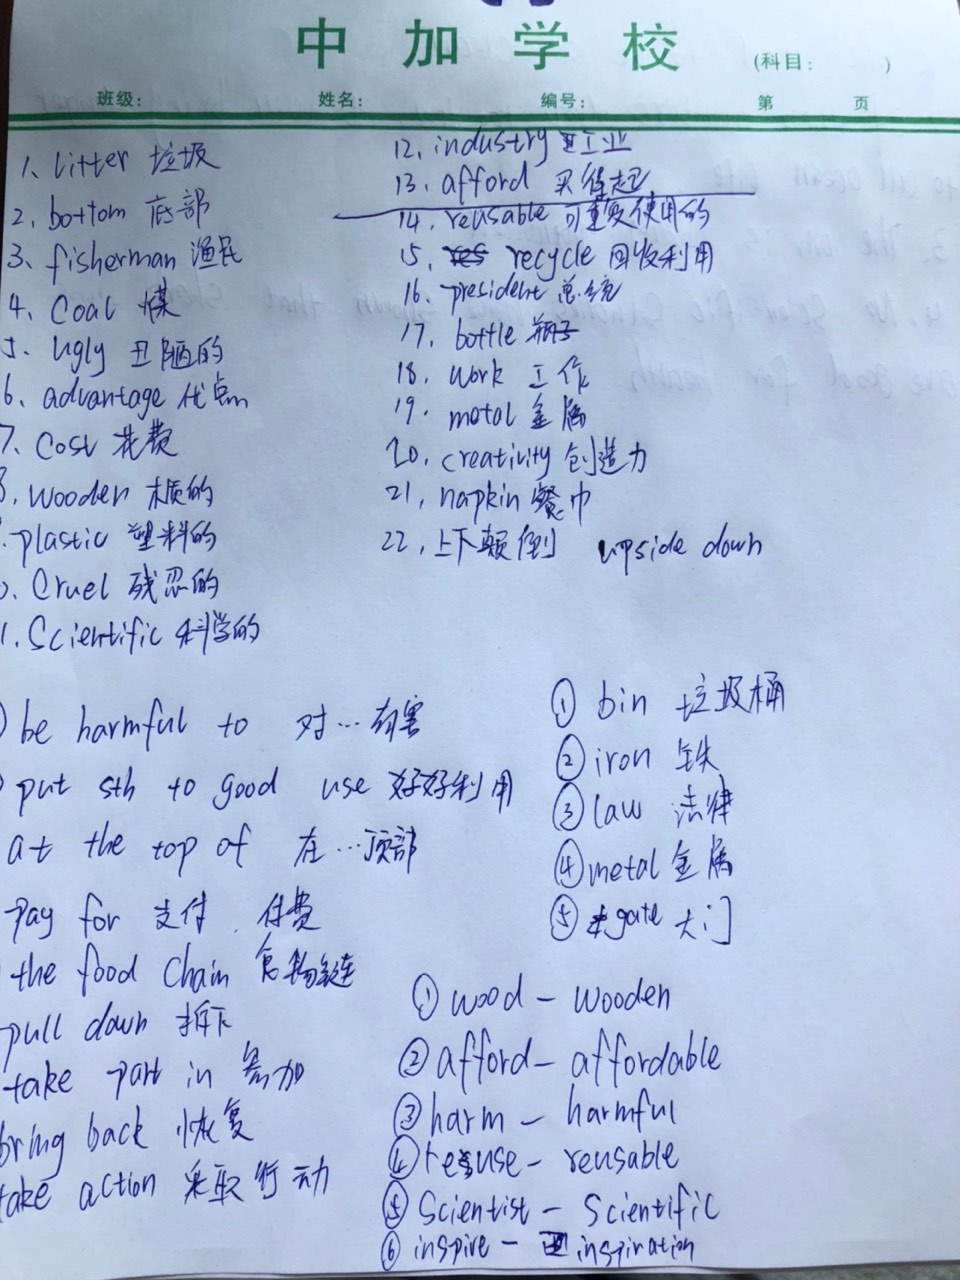 中加学校 (科目: )
班级: 姓名: 编号: 第 页
1、litter 垃圾
2、bottom 底部
3、fisherman 渔民
4、Coal 煤
5、Ugly 丑陋的
6、advantage 优点
7、Cost 花费
8、wooden 木质的
、plastic 塑料的
、Cruel 残忍的
1、Scientific 科学的
12、industry 工业
13、afford 买得起
14、reusable 可重复使用的
15、recycle 回收利用
16、president 总统
17、bottle 瓶子
18、work 工作
19、metal 金属
20、creativity 创造力
21、napkin 餐巾
22、上下颠倒 upside down
be harmful to 对…有害
put sth to good use 好好利用
at the top of 在…顶部
pay for 支付、付费
the food chain 食物链
pull down 拆下
take part in 参加
bring back 恢复
take action 采取行动
① bin 垃圾桶
② iron 铁
③ law 法律
④ metal 金属
⑤ gate 大门
① wood - wooden
② afford - affordable
③ harm - harmful
④ reuse - reusable
⑤ Scientist - Scientific
⑥ inspire - inspiration